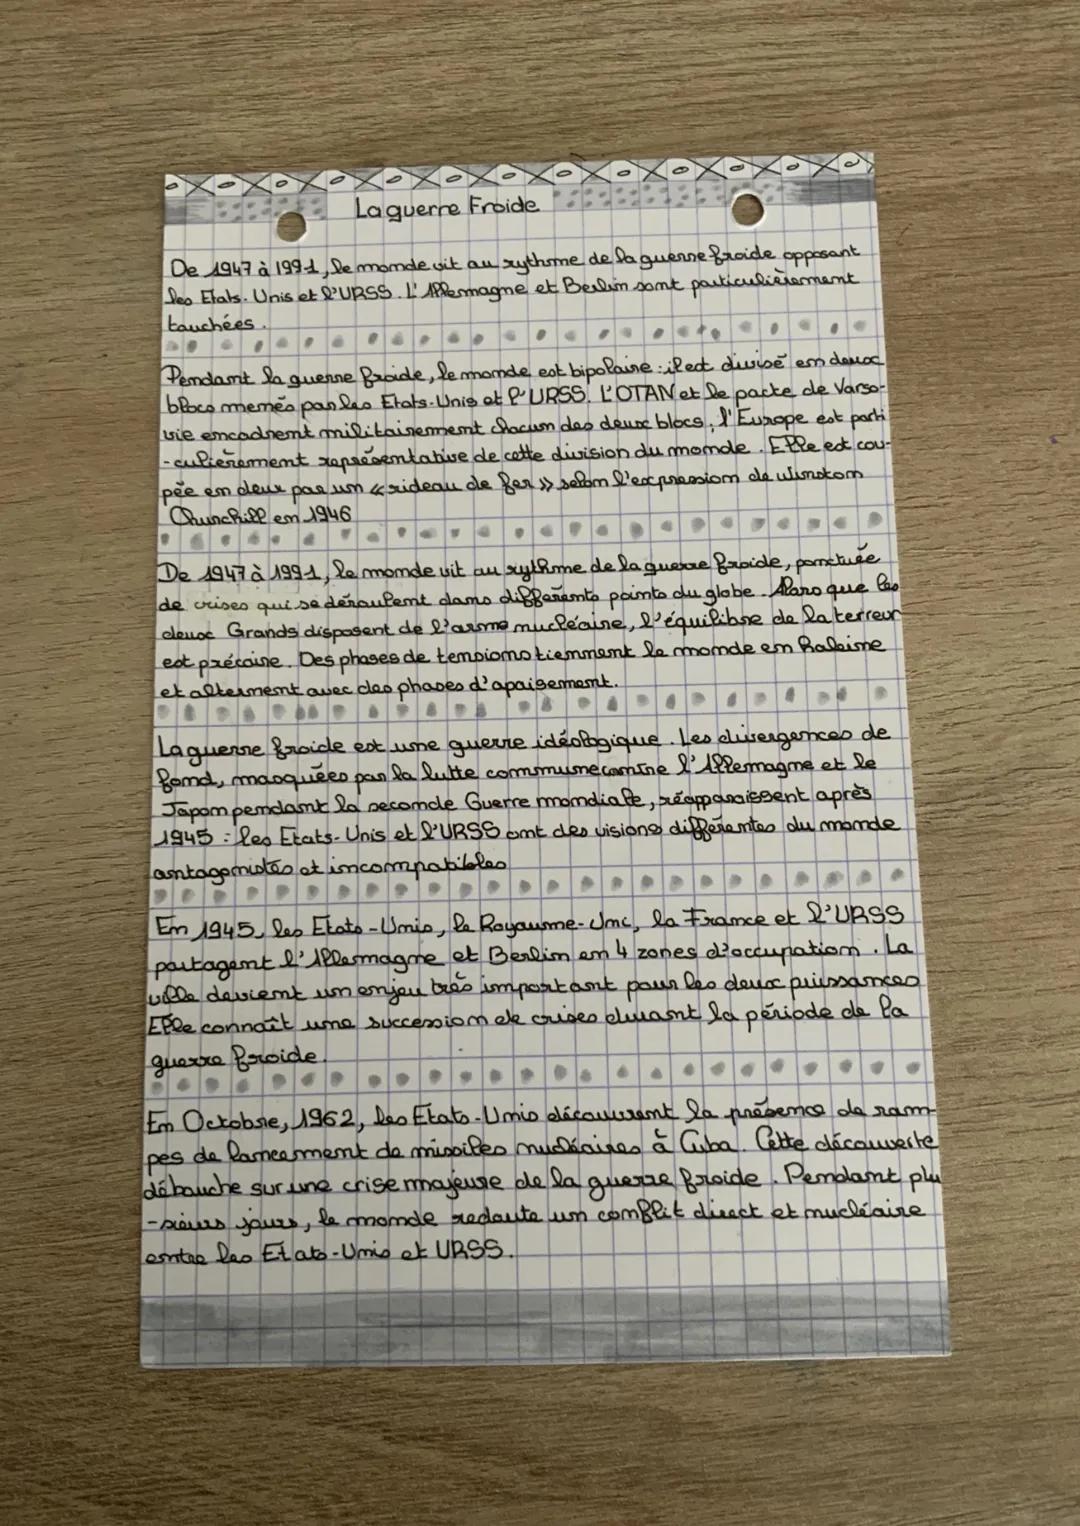 La guerre Froide
De 1947 à 1991, le monde vit au rythme de la guerre froide opposant
les Etats-Unis et l'URSS. L'Allemagne et Berlin sont particulièrement
touchées.
Pendant la guerre froide, le monde est bipolaire : il est divisé en deux
blocs menés par les Etats-Unis et l'URSS. L'OTAN et le pacte de Varso-
vie encadrent militairement chacun des deux blocs, l'Europe est parti
-culièrement représentative de cette division du monde. Elle est cou-
pée en deux par un « rideau de fer » selon l'expression de Winston
Churchill en 1946
De 1947 à 1991, le monde vit au rythme de la guerre froide, ponctuée
de crises qui se déroulent dans différents points du globe. Alors que les
deux Grands disposent de l'arme nucléaire, l'équilibre de la terreur
est précaire. Des phases de tensions tiennent le monde en haleine
et alternent avec des phases d'apaisement.
La guerre froide est une guerre idéologique. Les divergences de
fond, masquées par la lutte commune contre l'Allemagne et le
Japon pendant la seconde Guerre mondiale, réapparaissent après
1945 : les Etats-Unis et l'URSS ont des visions différentes du monde
antagonistes et incompatibles
En 1945, les Etats-Unis, le Royaume-Uni, la France et l'URSS
partagent l'Allemagne et Berlin en 4 zones d'occupation. La
ville devient un enjeu très important pour les deux puissances
Elle connaît une succession de crises durant la période de la
guerre froide.
En Octobre, 1962, les Etats-Unis découvrent la présence de ram-
pes de lancement de missiles nucléaires à Cuba. Cette découverte
débouche sur une crise majeure de la guerre froide. Pendant plu
-sieurs jours, le monde redoute un conflit direct et nucléaire
entre les Etats-Unis et URSS.